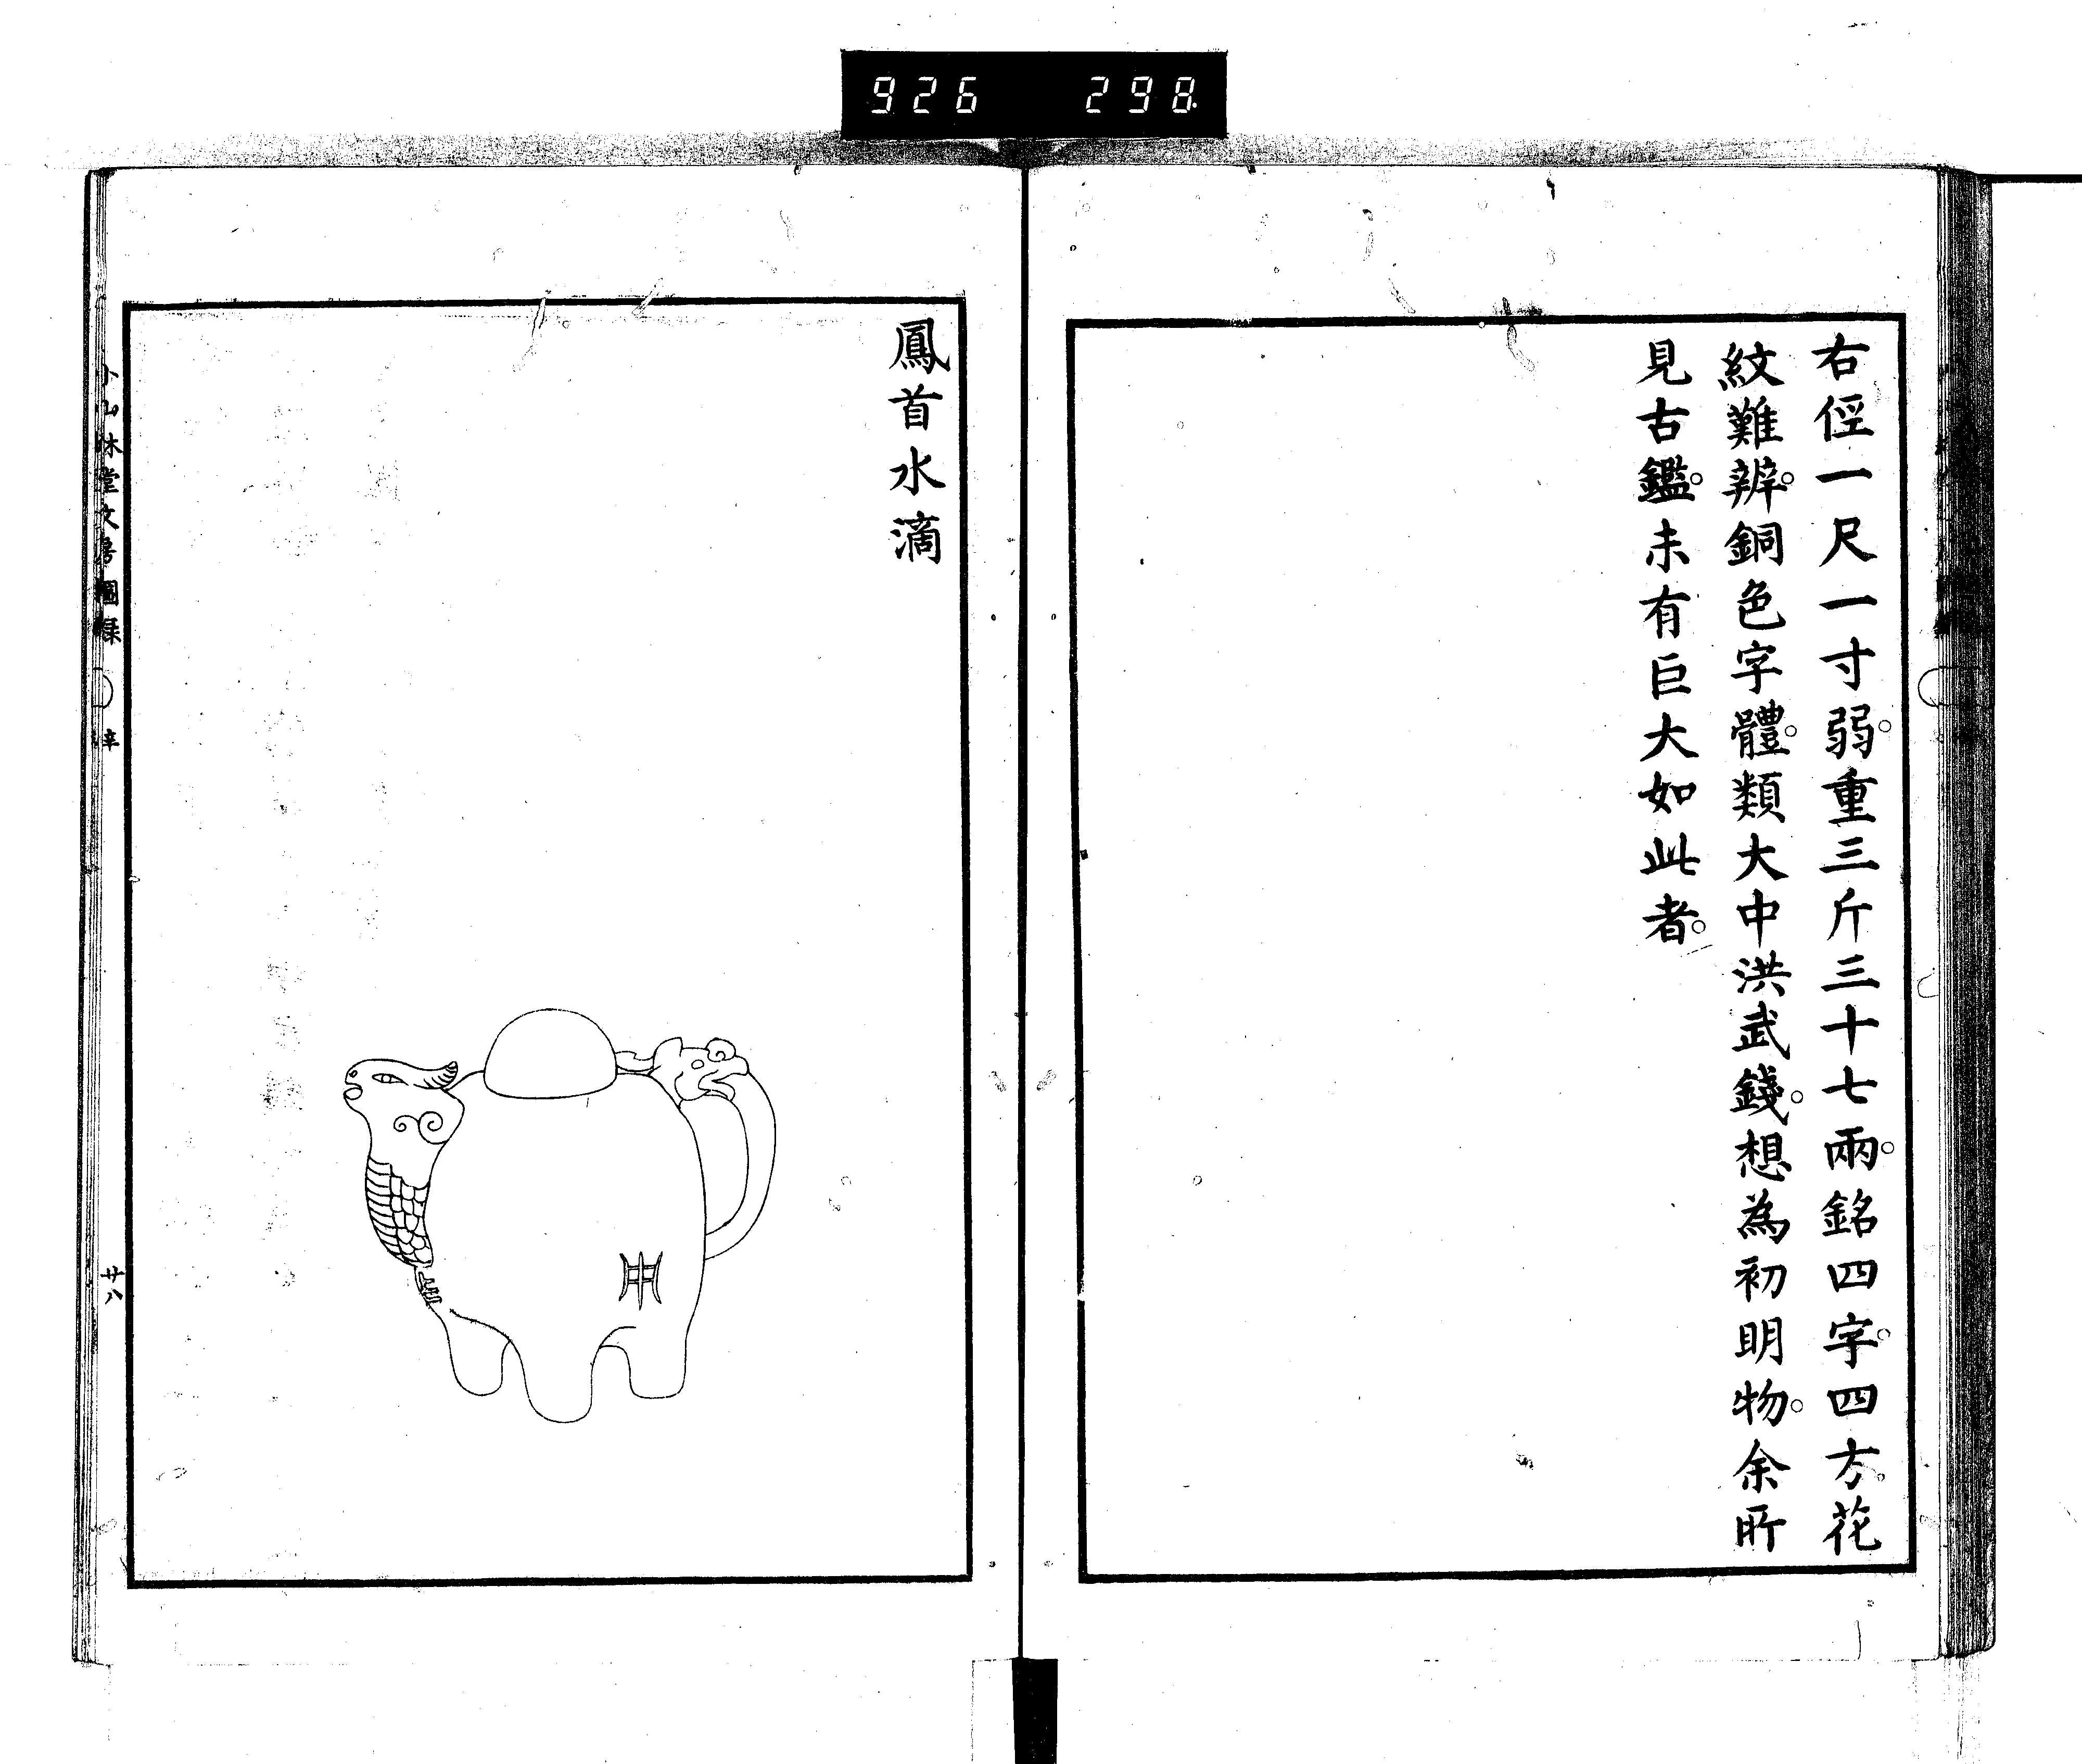 926 298
右徑一尺一寸弱。重三斤三十七兩。銘四字。四方。花
紋難辨。銅色字體。類大中洪武錢。想為初明物。余所
見古鑑。未有巨大如此者。
鳳首水滴
小山林堂文房圖録 辛
廿八